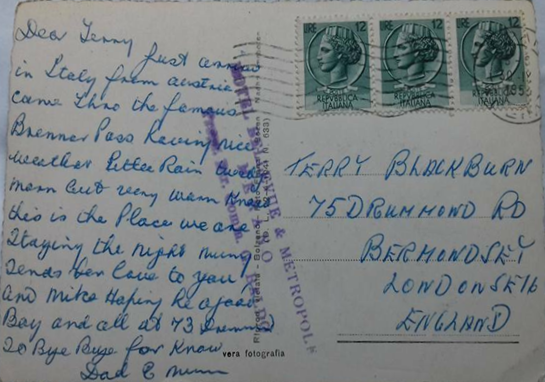 Dear Terry Just arrived
in Italy from austria
came thro the famous
Brenner Pass Having nice
weather little Rain
morn but very warm
this is the Place we are
Staying the night mum
Sends her love to you
And Mike Hoping he a good
Boy and all at 73
So Bye Bye for Know
Dad & Mum
LIRE 12
REPVBBLICA
ITALIANA
LIRE 12
REPVBBLICA
ITALIANA
12
REPVBBLICA
ITALIANA
TERRY BLACKBURN
75 DRUMMOND RD
BERMONDSEY
LONDON SE16
ENGLAND
& METROPOLE
vera fotografia